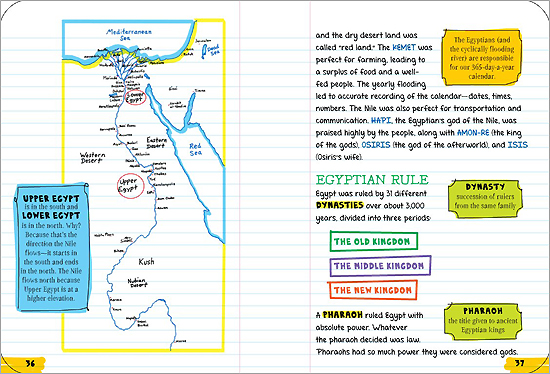 Mediterranean
Sea
Dead
Sea
Lower
Egypt
Sinai
Western
Desert
Eastern
Desert
Red
Sea
Upper
Egypt
Kush
Nubian
Desert
UPPER EGYPT
is in the south and
LOWER EGYPT
is in the north. Why?
Because that's the
direction the Nile
flows—it starts in
the south and ends
in the north. The Nile
flows north because
Upper Egypt is at a
higher elevation.
36
and the dry desert land was
called "red land." The KEMET was
perfect for farming, leading to
a surplus of food and a well-
fed people. The yearly flooding
led to accurate recording of the calendar—dates, times,
numbers. The Nile was also perfect for transportation and
communication. HAPI, the Egyptian's god of the Nile, was
praised highly by the people, along with AMON-RE (the king
of the gods), OSIRIS (the god of the afterworld), and ISIS
(Osiris's wife).
The Egyptians (and
the cyclically flooding
river) are responsible
for our 365-day-a-year
calendar.
EGYPTIAN RULE
Egypt was ruled by 31 different
DYNASTIES over about 3,000
years, divided into three periods:
DYNASTY
succession of rulers
from the same family
THE OLD KINGDOM
THE MIDDLE KINGDOM
THE NEW KINGDOM
A PHARAOH ruled Egypt with
absolute power. Whatever
the pharaoh decided was law.
Pharaohs had so much power they were considered gods.
PHARAOH
the title given to ancient
Egyptian kings
37